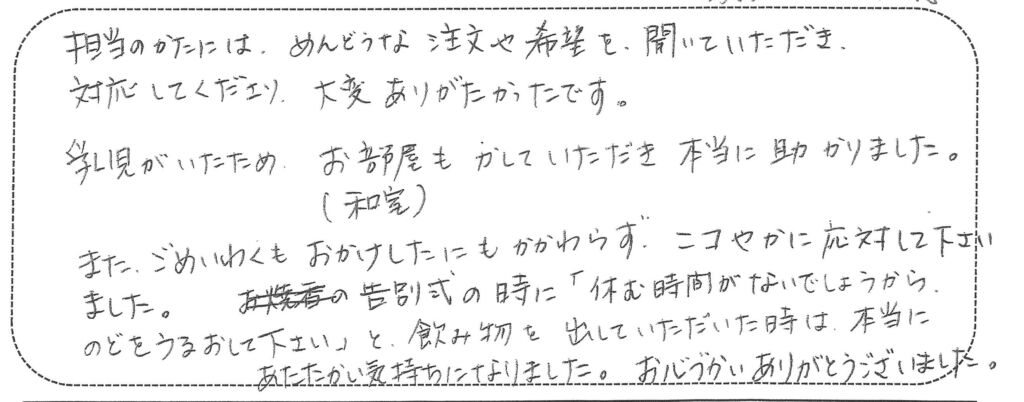 担当のかたには、めんどうな注文や希望を、聞いていただき、
対応してくださり、大変ありがたかったです。
乳児がいたため、お部屋もかしていただき本当に助かりました。
(和室)
また、ごめいわくもおかけしたにもかかわらず、ニコやかに応対して下さい
ました。 お焼香の告別式の時に「休む時間がないでしょうから、
のどをうるおして下さい」と、飲み物を出していただいた時は、本当に
あたたかい気持ちになりました。お心づかいありがとうございました。